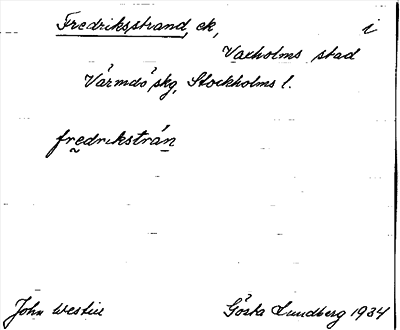 Fredriksstrand, ck, i
Vaxholms stad
Värmdö skg, Stockholms l.
fredrikstrán
John Westin Gösta Lundberg 1934